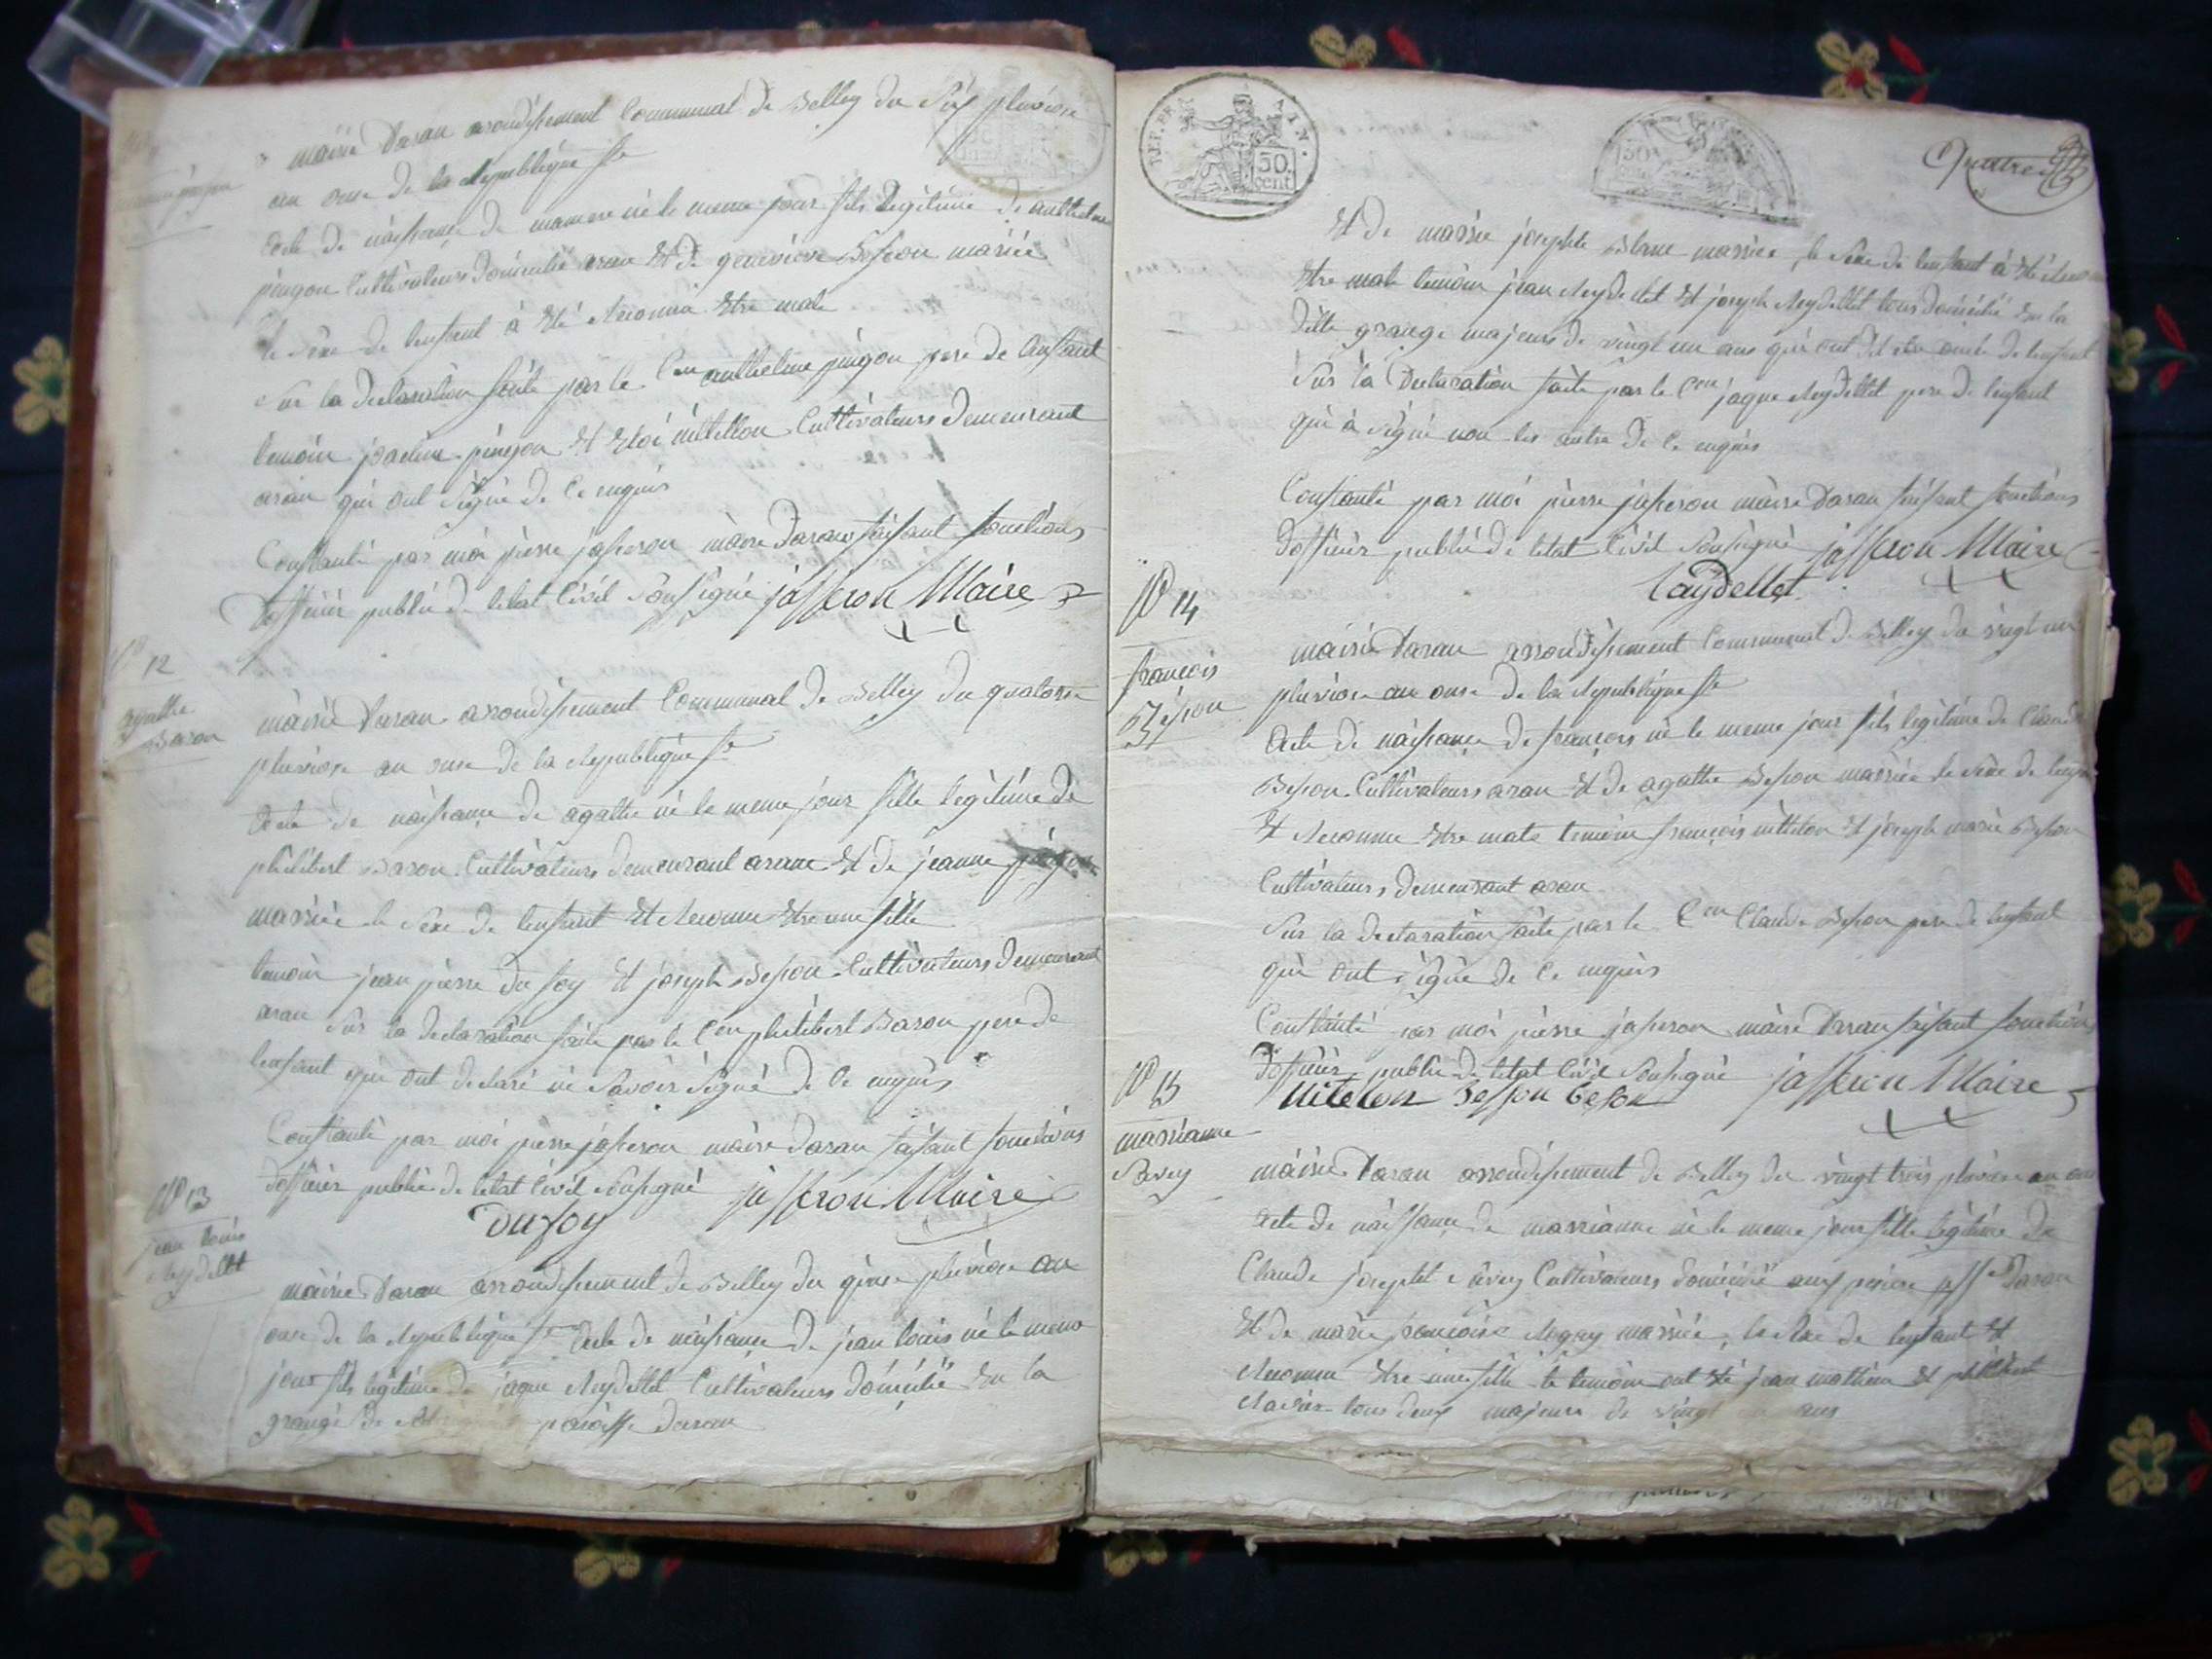 mairie Daran arondissement Communal de Belley du Six pluviose
an onze de la Republique fse
Acte de naissance de né le meme jour fils legitime de anthelme
pingon Cultivateurs domicilié aran Et de genevieve Besson mariée
le sexe de lenfant à Eté Reconnu Etre male
Sur la declaration faite par le Cen anthelme pingon pere de lenfant
temoin pingon Et Eloi mitillon Cultivateurs demeurant
aran qui ont Signé de Ce enquis
Constanté par moi pierre jasseron maire Daran faisant fonctions
Dofficier public de letat Civil Sousigné jasseron Maire
No 12
agathe
Baron
mairie Daran arondissement Communal de Belley du quatorze
pluviose an onze de la Republique fse
Acte de naissance de agathe né le meme jour fille legitime de
philibert Baron Cultivateurs demeurant arane Et de jeanne pingon
mariée le Sexe de lenfant Et Reconnu Etre une fille
temoin jean pierre du foy Et joseph Besson Cultivateurs demeurant
aran Sur la declaration faite par le Cen philibert Baron pere de
lenfant qui ont declaré ne Savoir Signé de Ce enquis
Constanté par moi pierre jasseron maire daran faisant fonctions
dofficier public de letat Civil Sousigné jasseron Maire
Dufoy
No 13
jean louis
Reydellet
mairie Daran arrondissement de Belley du quinse pluviose an
onze de la Republique fse Acte de naissance de jean louis né le meme
jour fils legitime de jaque Reydellet Cultivateurs domicilié Sur la
grange de paroisse daran
REP. FRA. AIN.
50 cent
50
Quatre
Et de marie josephte Blanc mariée, le Sexe de lenfant à Eté Reconnu
Etre male temoin jean Reydellet Et joseph Reydellet tous domicilié Sur la
ditte grange majeurs de vingt un ans qui ont dit oncle de lenfant
Sur la Declaration faite par le Cen jaque Reydellet pere de lenfant
qui à Signé non les autre de Ce enquis
Constanté par moi pierre jasseron maire Daran faisant fonctions
Dofficier public de letat Civil Sousigné jasseron Maire
Raydellet
No 14
francois
Besson
mairie Daran arrondissement Communal de Belley du vingt un
pluviose an onze de la Republique fse
Acte de naissance de françois né le meme jour fils legitime de Claude
Besson Cultivateurs aran Et de agathe Besson mariée le Sexe de
Et Reconnu Etre male temoin françois mitilon Et joseph marie Besson
Cultivateurs demeurant aran
Sur la declaration faite par le Cen Claude Besson pere de lenfant
qui ont Signé de Ce enquis
Constanté par moi pierre jasseron maire Daran faisant fonctions
Dofficier public de letat Civil Sousigné jasseron Maire
Mitelon Besson beson
No 15
marianne
Savey
mairie Daran arrondissement de Belley du vingt trois pluviose an
Acte de naissance de marianne né le meme jour fille legitime de
Claude joseph Savey Cultivateurs domicilié Daran
Et de marie françoise mariée, le Sexe de lenfant Et
Reconnu Etre une fille le temoin ont Eté jean mathieu Et philibert
tous deux majeurs de vingt un ans